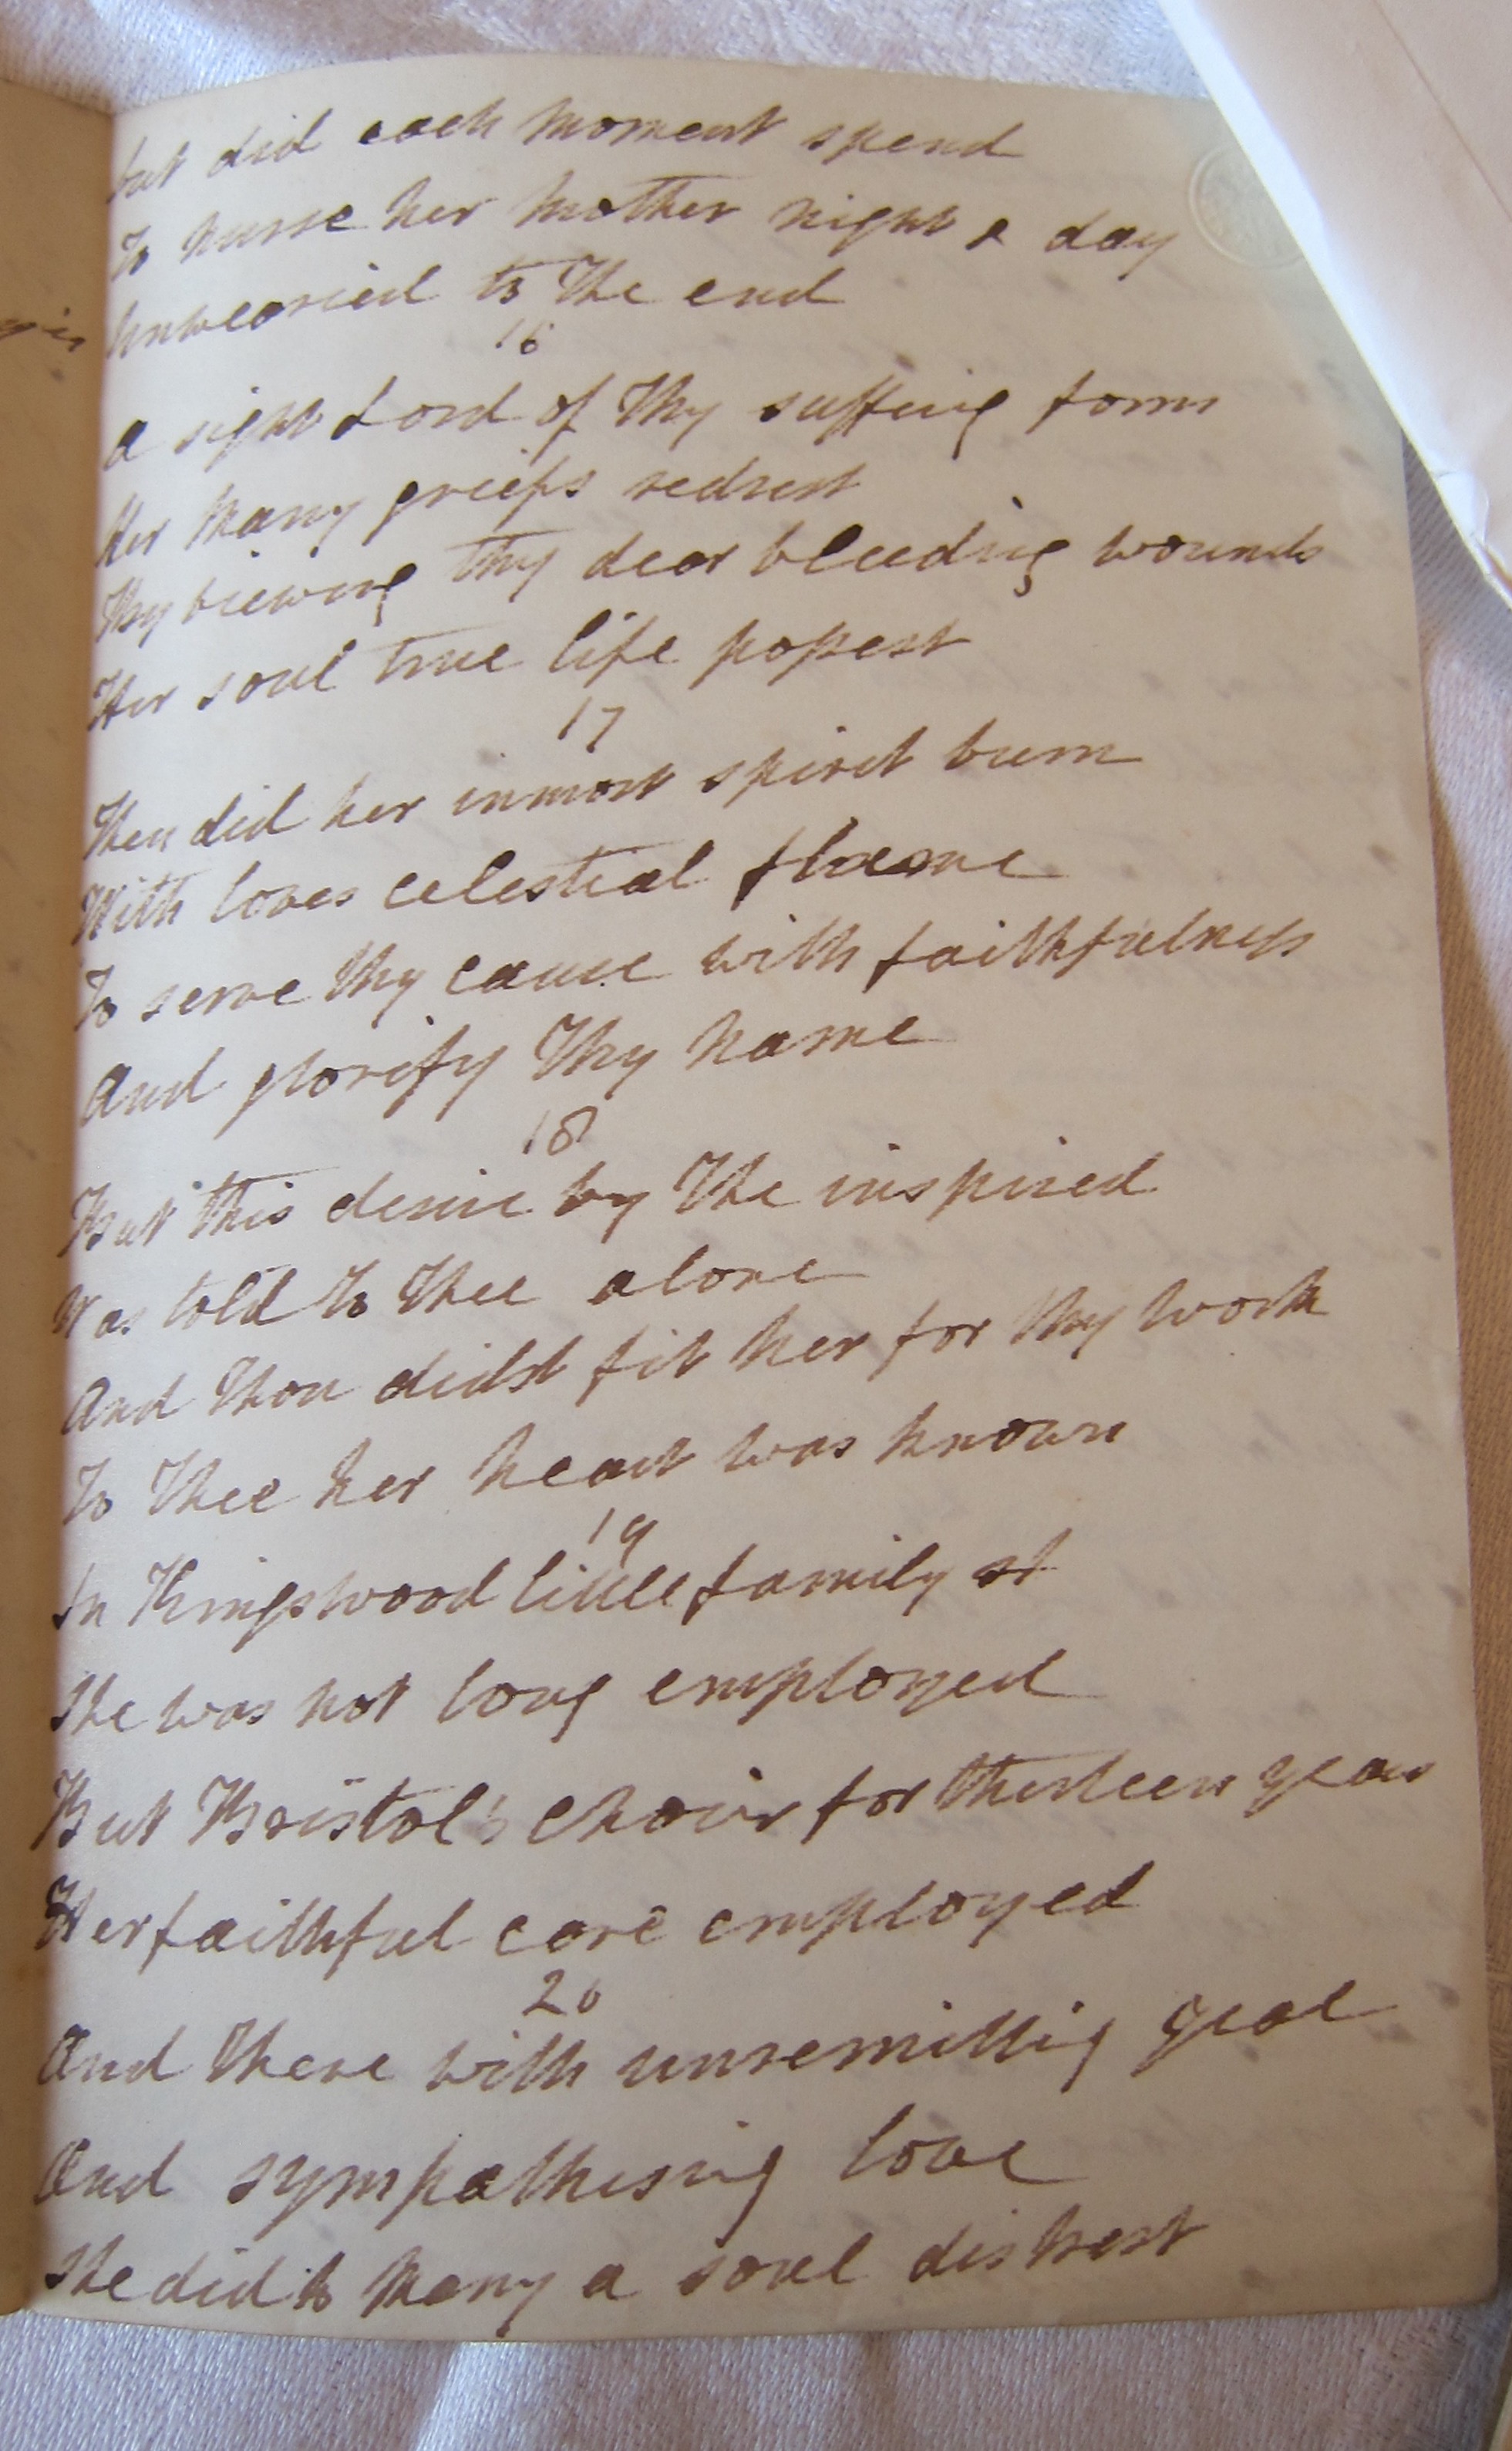 but did each moment spend
To nurse her mother night & day
Unwearied to the end
16
a sight Lord of Thy suffring form
Her many griefs redrest
By viewing thy dear bleeding wounds
Her soul true life possest
17
Then did her inmost spirit burn
With loves celestial flame
To serve thy cause with faithfulness
And glorify Thy name
18
But this desire by The inspired
Was told to Thee alone
And Thou didst fit her for Thy work
To Thee her heart was known
19
In Kingswood little family st
She was not long employed
But Bristol's choir for thirteen years
Her faithful care employed
20
And there with unremitting zeal
And sympathising love
She did to many a soul distrest